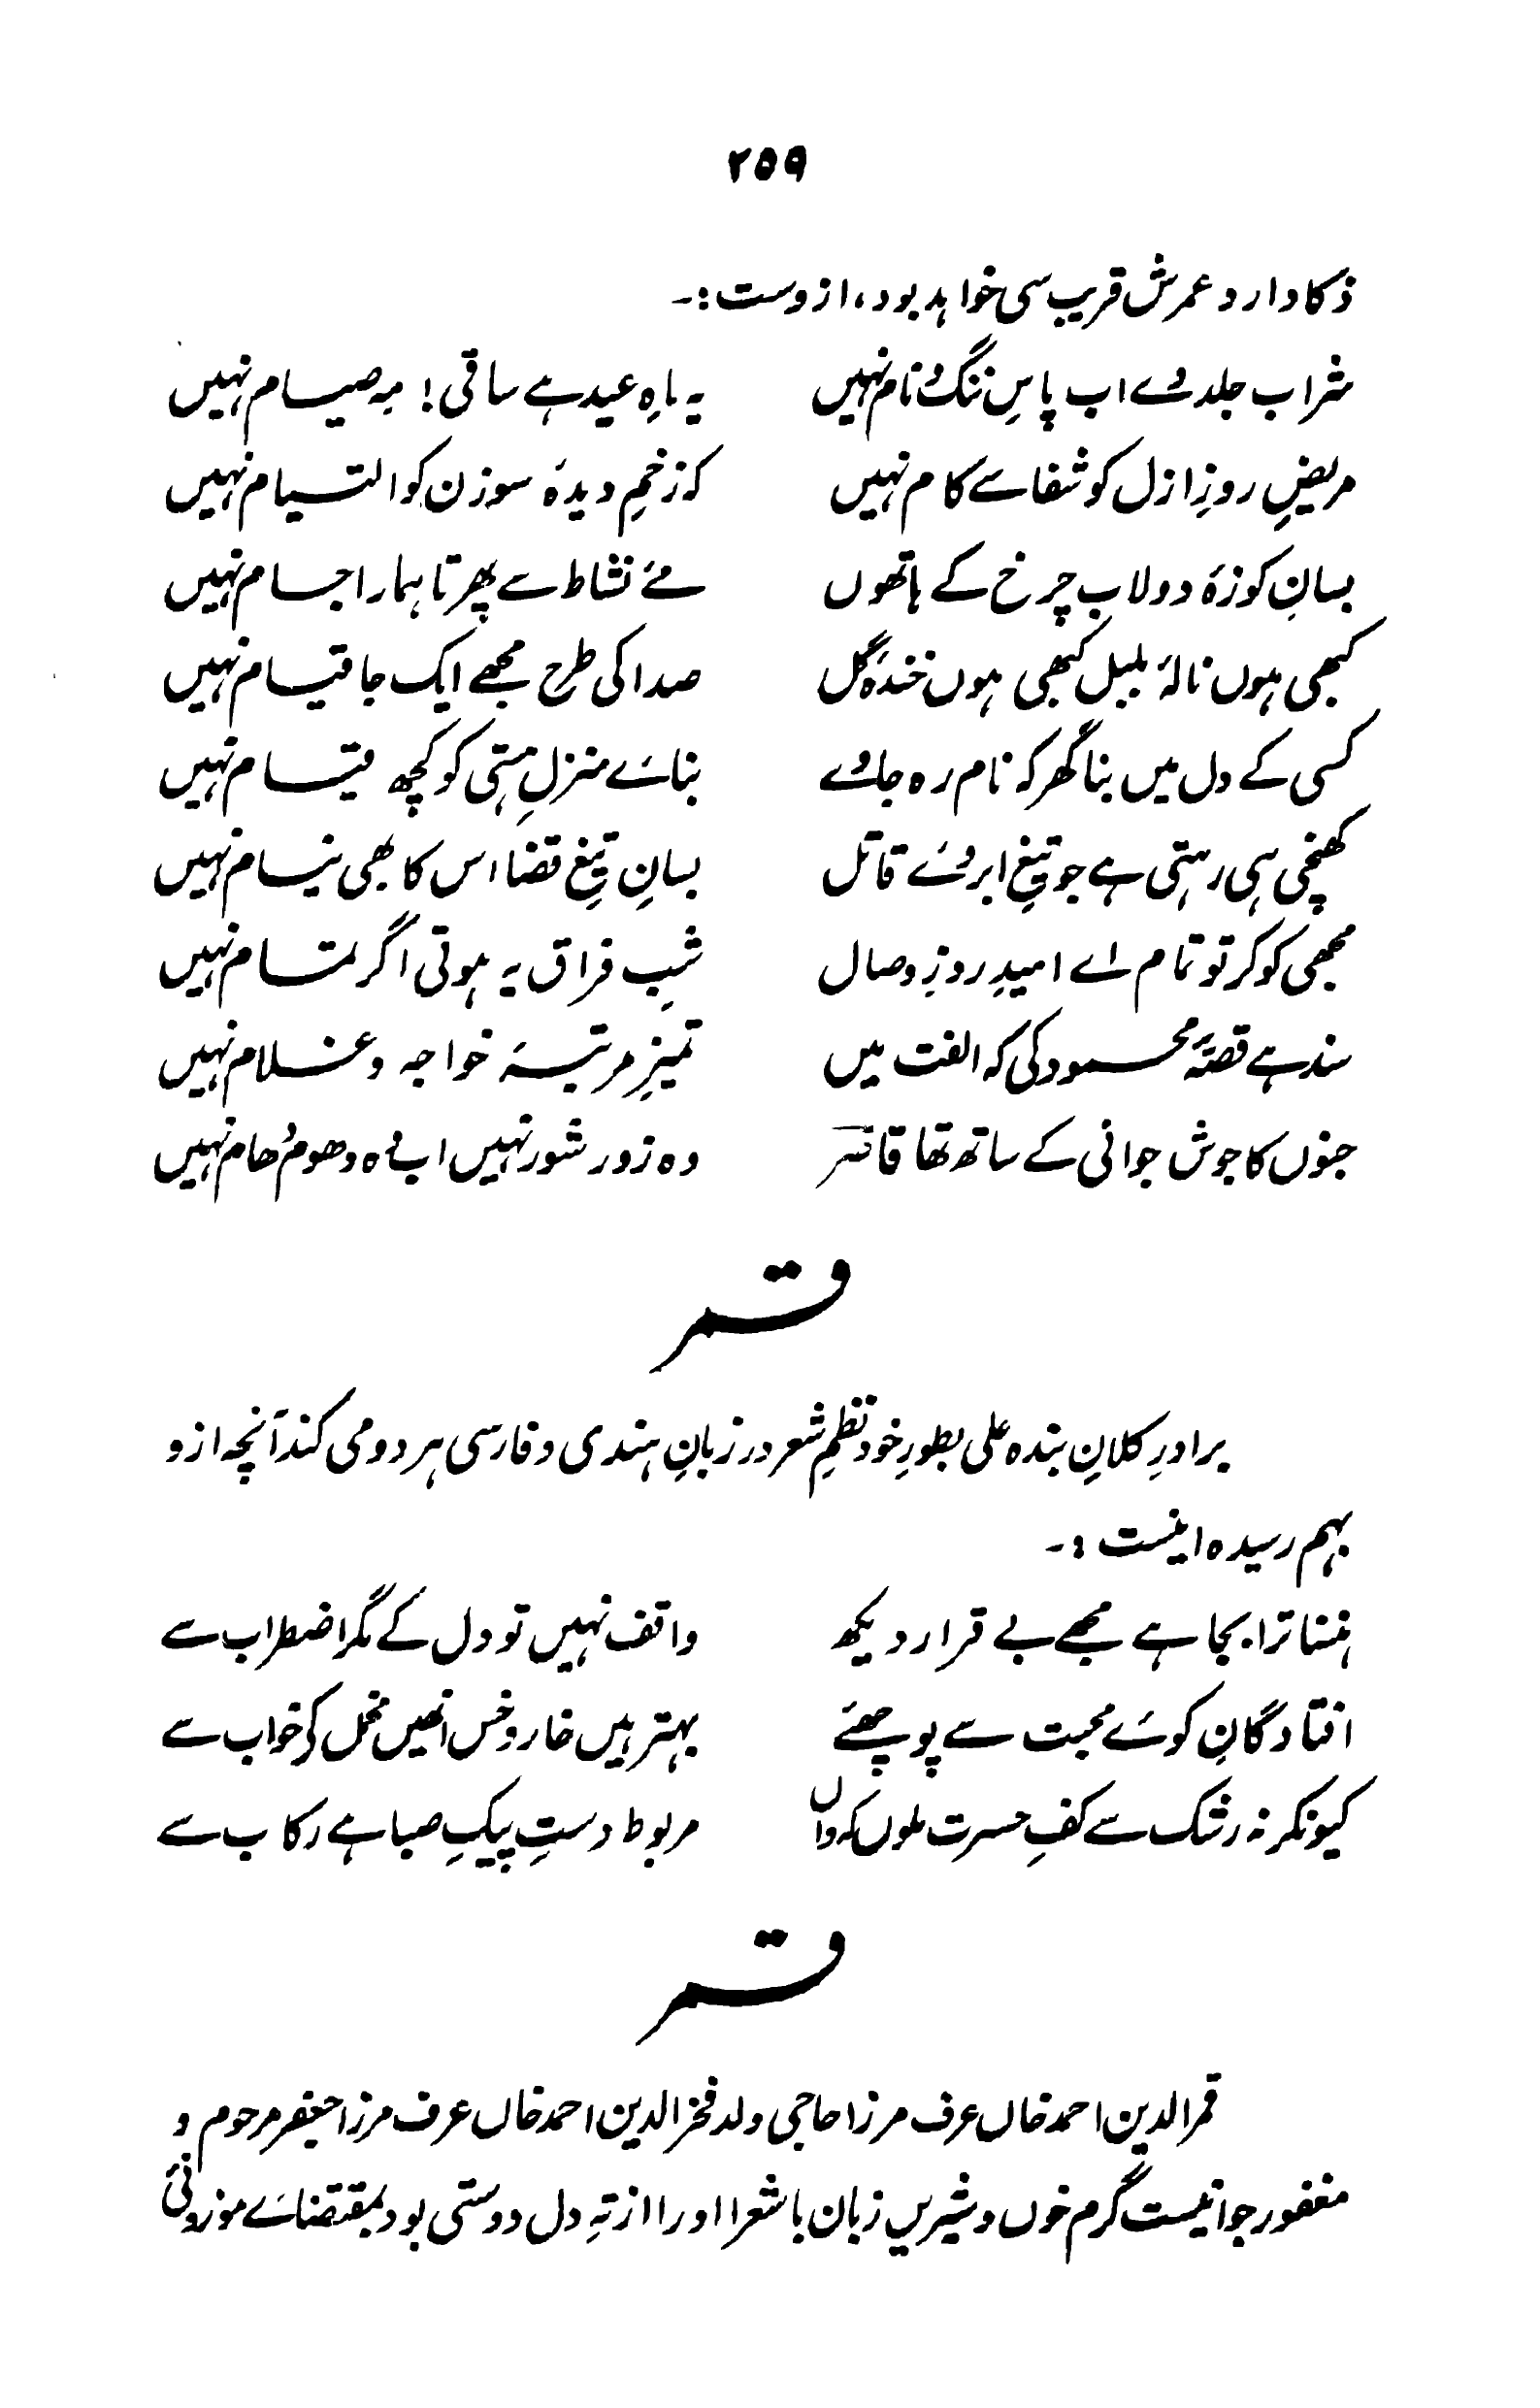 ۲۵۹
ذکا دارد عمرش قریب سی خواہد بود، ازوست :۔
شراب جلد دے اب پاسِ ننگ و نام نہیں یہ ماہِ عید ہے ساقی! مہِ صیام نہیں
مریضِ روزِ ازل کو شفا سے کام نہیں کہ زخمِ دیدۂ سوزن کو التیام نہیں
بسانِ کوزۂ دولاب چرخ کے ہاتھوں مئے نشاط سے پھرتا ہمارا جام نہیں
کبھی ہوں نالۂ بلبل کبھی ہوں خندۂ گل صدا کی طرح مجھے ایک جا قیام نہیں
کسی کے دل میں بنا گھر کہ نام رہ جاوے بنائے منزلِ ہستی کو کچھ قیام نہیں
کھنچی ہی رہتی ہے جو تیغِ ابروئے قاتل بسانِ تیغِ قضا اس کا بھی نیام نہیں
مجھی کو کر تو تمام اے امیدِ روزِ وصال شبِ فراق یہ ہوتی اگر تمام نہیں
سند ہے قصۂ محمود کی کہ الفت میں تمیزِ مرتبۂ خواجہ و غلام نہیں
جنوں کا جوش جوانی کے ساتھ تھا قاصر وہ زور شور نہیں اب وہ دھوم دھام نہیں
قمر
برادرِ کلانِ بندہ علی بطورِ خود نظمِ شعر در زبانِ ہندی و فارسی ہر دو می کند آنچہ ازو
بہم رسیدہ اینست :۔
ہنسنا ترا بجا ہے مجھے بے قرار دیکھ واقف نہیں تو دل کے مگر اضطراب سے
افتادگانِ کوئے محبت سے پوچھئے بہتر ہیں خار و خس انھیں مخمل کی خواب سے
کیونکر نہ رشک سے کفِ حسرت ملوں کہ واں مربوط دستِ پیکِ صبا ہے رکاب سے
قمر
قمر الدین احمد خاں عرف مرزا حاجی ولد فخر الدین احمد خاں عرف مرزا جعفر مرحوم و
مغفور جوانیست گرم خوں و شیریں زبان با شعرا او را از تہِ دل دوستی بود بمقتضائے موزونیٔ